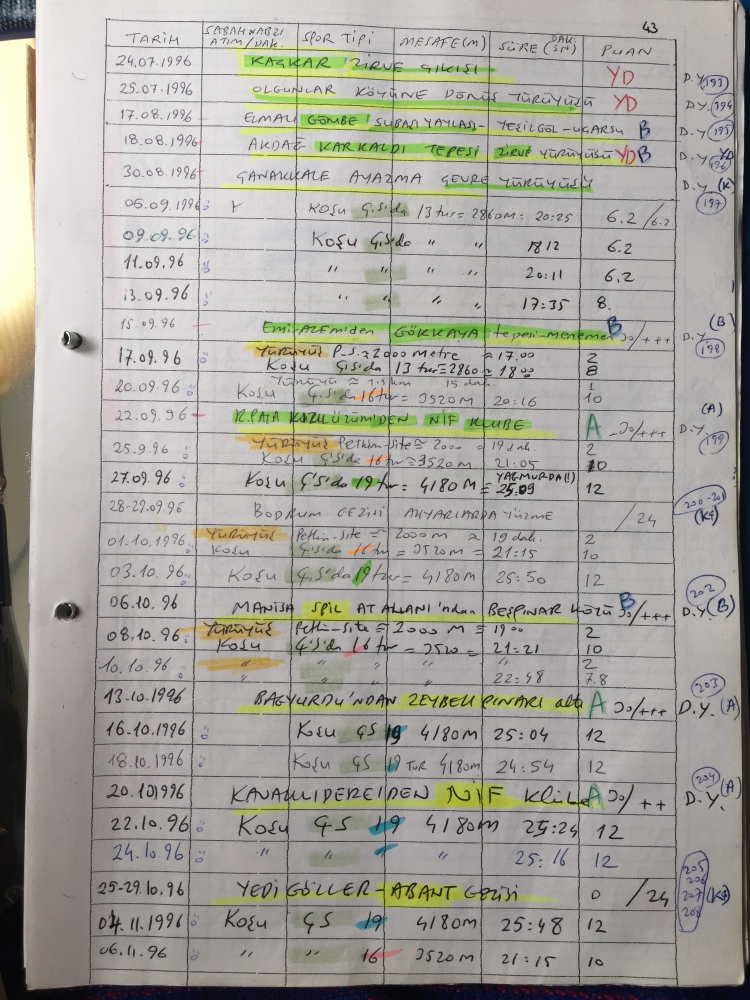 43
TARİH SABAH NABZI ATIM/DAK. SPOR TİPİ MESAFE(M) SÜRE (DAK: SN) PUAN
24.07.1996 KAÇKAR ZİRVE ÇIKIŞI YD D.Y 193
25.07.1996 OLGUNLAR KÖYÜNE DÖNÜŞ YÜRÜYÜŞÜ YD D.Y. 194
17.08.1996 ELMALI GÖMBE SUBAŞI YAYLASI- YEŞİLGÖL-UÇARSU B D.Y 195
18.08.1996 AKDAĞ KARKALDI TEPESİ ZİRVE YÜRÜYÜŞÜ YD B D.Y YD 196
30.08.1996 ÇANAKKALE AYAZMA ÇEVRE YÜRÜYÜŞÜ D.Y (K) 197
05.09.1996 KOŞU Ç.S'da 13 tur = 2860M: 20:25 6.2 /6.2
09.09.96 KOŞU Ç.S'da " " 1812 6.2
11.09.96 " " " " 20:11 6.2
13.09.96 " " " " 17:35 8.
15.09.96 Emiralem'den GÖKKAYA tepesi-menemen B 30/+++ D.Y. (B) 198
17.09.96 YÜRÜYÜŞ P-S ≅ 2000 metre ≅ 17.00 2
KOŞU Ç.S'da 13 tur=2860 ≅ 1800 8
Yürüyüş ≅ 1.5 km 15 dak. 1
20.09.96 KOŞU Ç.S'da 16 tur = 3520M 20:16 10
22.09.96 K.PAŞA KUZULUZUM'DEN NİF KLUBE A 30/+++ D.Y (A) 199
25.9.96 YÜRÜYÜŞ Petkim-site ≅ 2000 = 19 dak. 2
KOŞU Ç.S'da 16 tur = 3520M 21:05 10
YAĞMURDA(!)
27.09.96 KOŞU Ç.S'da 19 tur = 4180M = 25:09 12
28-29.09.96 BODRUM GEZİSİ AKYARLARDA YÜZME /24 200-201 (KG)
01.10.1996 YÜRÜYÜŞ Petkim-site = 2000M ≅ 19 dak. 2
KOŞU Ç.S'da 16 tur = 3520M = 21:15 10
03.10.96 KOŞU Ç.S'da 19 tur = 4180M 25:50 12
06.10.96 MANİSA SPİL AT ALANI'ndan BEŞPINAR KÖYÜ B 30/+++ 202 D.Y.(B)
08.10.96 YÜRÜYÜŞ Petkim-site = 2000 M = 1900 2
KOŞU Ç.S'da 16 tur = 3520 = 21:21 10
10.10.96 " " " " 2
" " " 22:48 7.8
13.10.1996 BAĞYURDU'NDAN ZEYBEK PINARI altı A 30/+++ 203 D.Y. (A)
16.10.1996 KOŞU ÇS 19 4180M 25:04 12
18.10.1996 KOŞU ÇS 19 TUR 4180M 24:54 12
20.10.1996 KAVAKLIDERE'DEN NİF KLÜBE A 30/++ 204 D.Y. (A)
22.10.96 KOŞU ÇS 19 4180M 25:24 12
24.10.96 " " " " 25:16 12
25-29.10.96 YEDİ GÖLLER-ABANT GEZİSİ 0 /24 205 206 207 208 (KG)
04.11.1996 KOŞU ÇS 19 4180M 25:48 12
06.11.96 " " 16 3520M 21:15 10